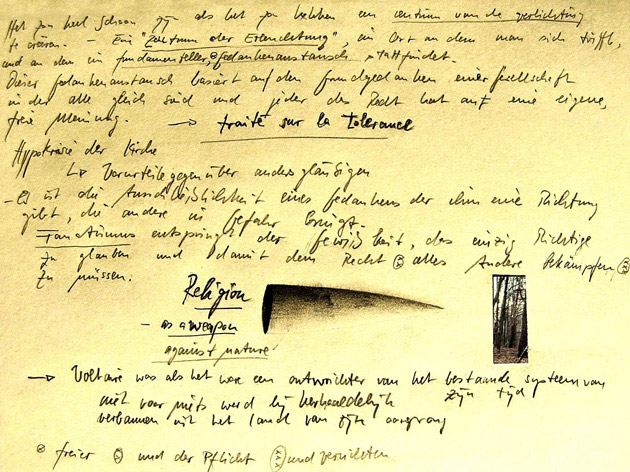 Het zou heel schoon zijn als het zou hebben een centrum van de verlichting
te creëren. – Ein "Zentrum der Erleuchtung", ein Ort an dem man sich trifft,
und an dem ein fundamenteller Gedankenaustausch stattfindet.
Dieser Gedankenaustausch basiert auf den Grundgedanken einer Gesellschaft
in der alle gleich sind und jeder das Recht hat auf eine eigene,
freie Meinung. → traité sur la Tolerance
Hypokrisie der Kirche
↳ Vorurteile gegenüber andersgläubigen
– Es ist die Ausschließlichkeit eines Gedankens der ihm eine Richtung
gibt, die andere in Gefahr bringt.
Fanatismus entspringt der Gewißheit, das einzig Richtige
zu glauben und damit dem Recht alles Andere bekämpfen
zu müssen.
Religion
– as a weapon
against nature
→ Voltaire was als het ware een ontwrichter van het bestaande systeem van
zijn tijd
niet voor niets werd hij herhaaldelijk
verbannen uit het land van zijn oorsprong
freier und der Pflicht und vernichten